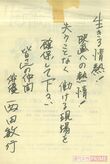 生きる情熱!
映画への熱情!
失うことなく 働ける現場を
確保して下さい
皆さんの仲間
俳優 西田敏行